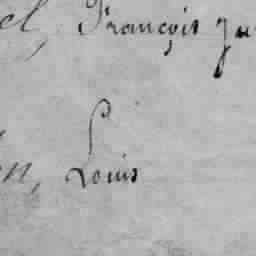 el, François Ju
en, Louis